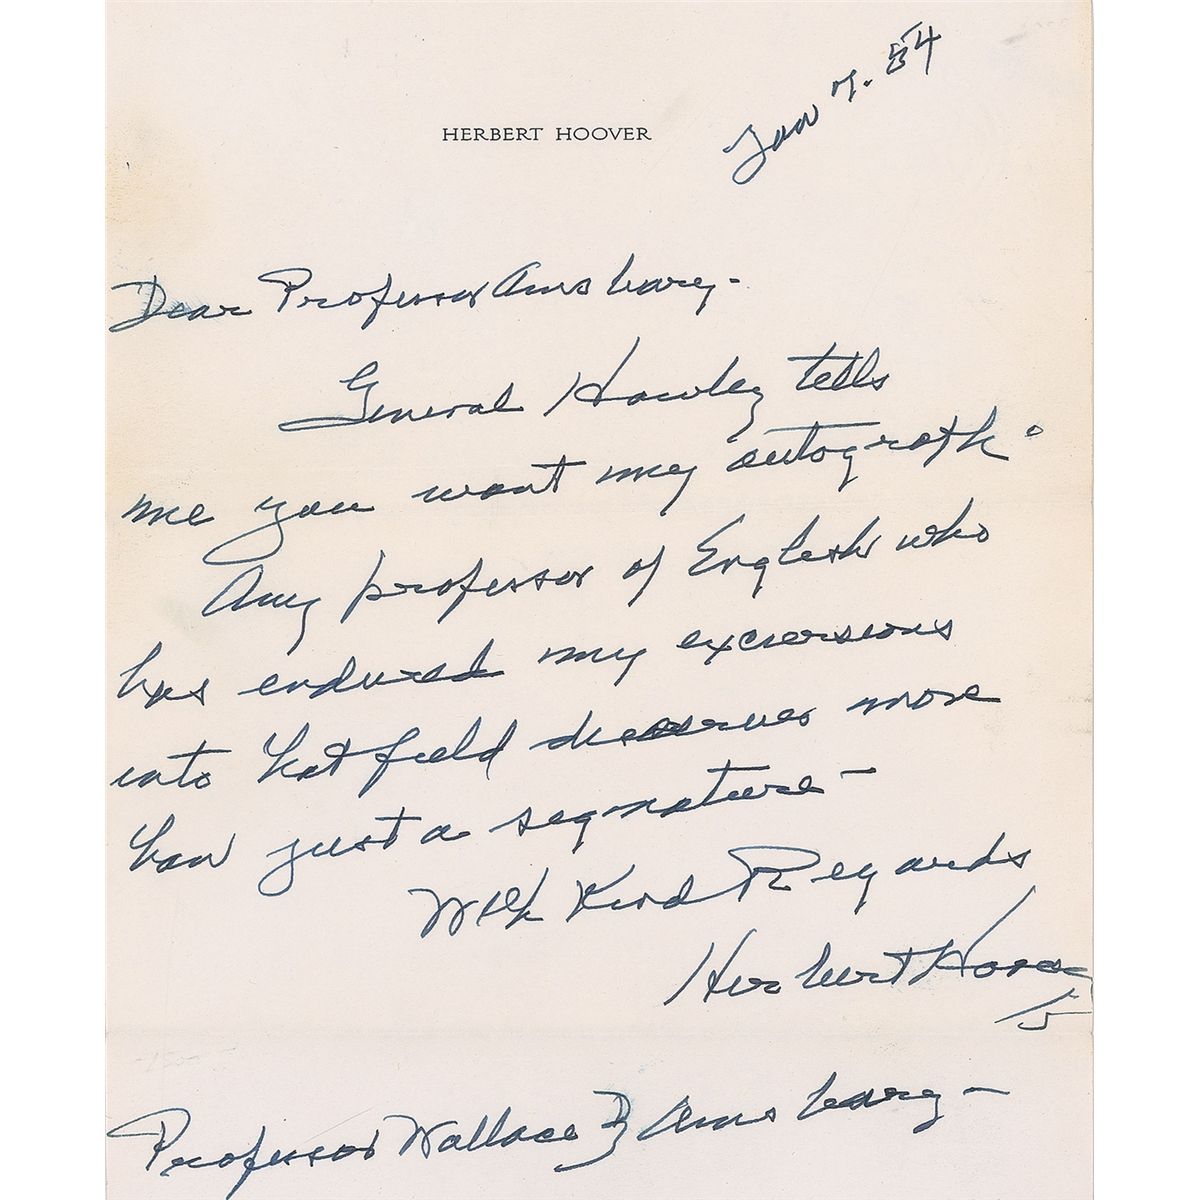 HERBERT HOOVER
Jan 7. 54
Dear Professor Amsbary-
General Hawley tells
me you want my autograph.
Any professor of English who
has endured my excursions
into that field deserves more
than just a signature-
With Kind Regards
Herbert Hoover
Professor Wallace B Amsbary-